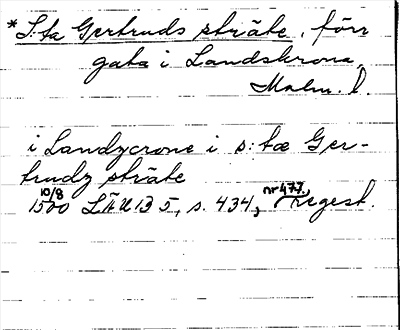 * S:ta Gertruds sträte, förr
gata i Landskrona,
Malm. l.
i Landzcrone i s:tæ Ger-
trudz sträte
10/8 1500 LÄU 13 5, s. 434, nr 477, regest.